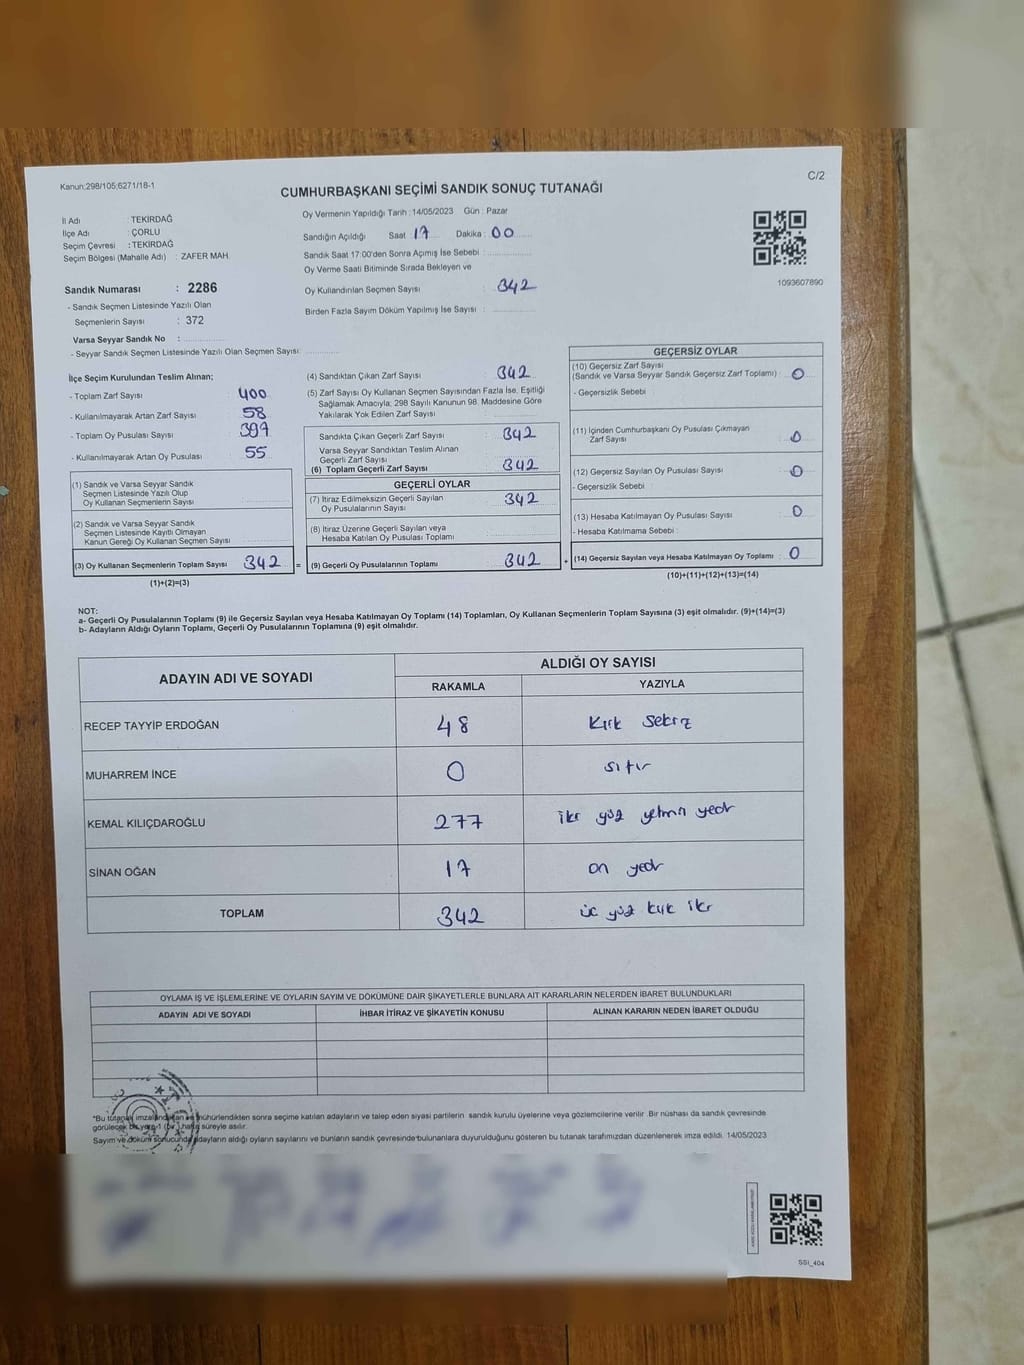 Kanun:298/105;6271/18-1
C/2
CUMHURBAŞKANI SEÇİMİ SANDIK SONUÇ TUTANAĞI
İl Adı : TEKİRDAĞ
İlçe Adı : ÇORLU
Seçim Çevresi : TEKİRDAĞ
Seçim Bölgesi (Mahalle Adı) : ZAFER MAH.
Sandık Numarası : 2286
- Sandık Seçmen Listesinde Yazılı Olan
Seçmenlerin Sayısı : 372
Varsa Seyyar Sandık No :
- Seyyar Sandık Seçmen Listesinde Yazılı Olan Seçmen Sayısı:
Oy Vermenin Yapıldığı Tarih : 14/05/2023 Gün : Pazar
Sandığın Açıldığı Saat 17 Dakika : 00
Sandık Saat 17:00'den Sonra Açımış İse Sebebi :
Oy Verme Saati Bitiminde Sırada Bekleyen ve
Oy Kullandırılan Seçmen Sayısı : 342
Birden Fazla Sayım Döküm Yapılmış İse Sayısı :
1093607890
İlçe Seçim Kurulundan Teslim Alınan;
- Toplam Zarf Sayısı : 400
- Kullanılmayarak Artan Zarf Sayısı : 58
- Toplam Oy Pusulası Sayısı : 397
- Kullanılmayarak Artan Oy Pusulası : 55
(1) Sandık ve Varsa Seyyar Sandık
Seçmen Listesinde Yazılı Olup
Oy Kullanan Seçmenlerin Sayısı
(2) Sandık ve Varsa Seyyar Sandık
Seçmen Listesinde Kayıtlı Olmayan
Kanun Gereği Oy Kullanan Seçmen Sayısı
(3) Oy Kullanan Seçmenlerin Toplam Sayısı 342 =
(1)+(2)=(3)
(4) Sandıktan Çıkan Zarf Sayısı : 342
(5) Zarf Sayısı Oy Kullanan Seçmen Sayısından Fazla İse, Eşitliği
Sağlamak Amacıyla; 298 Sayılı Kanunun 98. Maddesine Göre
Yakılarak Yok Edilen Zarf Sayısı :
Sandıkta Çıkan Geçerli Zarf Sayısı : 342
Varsa Seyyar Sandıktan Teslim Alınan
Geçerli Zarf Sayısı :
(6) Toplam Geçerli Zarf Sayısı : 342
GEÇERLİ OYLAR
(7) İtiraz Edilmeksizin Geçerli Sayılan
Oy Pusulalarının Sayısı : 342
(8) İtiraz Üzerine Geçerli Sayılan veya
Hesaba Katılan Oy Pusulası Toplamı :
(9) Geçerli Oy Pusulalarının Toplamı : 342 +
GEÇERSİZ OYLAR
(10) Geçersiz Zarf Sayısı
(Sandık ve Varsa Seyyar Sandık Geçersiz Zarf Toplamı) : 0
- Geçersizlik Sebebi :
(11) İçinden Cumhurbaşkanı Oy Pusulası Çıkmayan
Zarf Sayısı : 0
(12) Geçersiz Sayılan Oy Pusulası Sayısı : 0
- Geçersizlik Sebebi :
(13) Hesaba Katılmayan Oy Pusulası Sayısı : 0
- Hesaba Katılmama Sebebi :
(14) Geçersiz Sayılan veya Hesaba Katılmayan Oy Toplamı : 0
(10)+(11)+(12)+(13)=(14)
NOT:
a- Geçerli Oy Pusulalarının Toplamı (9) ile Geçersiz Sayılan veya Hesaba Katılmayan Oy Toplamı (14) Toplamları, Oy Kullanan Seçmenlerin Toplam Sayısına (3) eşit olmalıdır. (9)+(14)=(3)
b- Adayların Aldığı Oyların Toplamı, Geçerli Oy Pusulalarının Toplamına (9) eşit olmalıdır.
ADAYIN ADI VE SOYADI ALDIĞI OY SAYISI
RAKAMLA YAZIYLA
RECEP TAYYİP ERDOĞAN 48 Kırk sekiz
MUHARREM İNCE 0 sıfır
KEMAL KILIÇDAROĞLU 277 iki yüz yetmiş yedi
SİNAN OĞAN 17 on yedi
TOPLAM 342 üç yüz kırk iki
OYLAMA İŞ VE İŞLEMLERİNE VE OYLARIN SAYIM VE DÖKÜMÜNE DAİR ŞİKAYETLERLE BUNLARA AİT KARARLARIN NELERDEN İBARET BULUNDUKLARI
ADAYIN ADI VE SOYADI İHBAR İTİRAZ VE ŞİKAYETİN KONUSU ALINAN KARARIN NEDEN İBARET OLDUĞU
*Bu tutanak imzalandıktan ve mühürlendikten sonra seçime katılan adayların ve talep eden siyasi partilerin sandık kurulu üyelerine veya gözlemcilerine verilir. Bir nüshası da sandık çevresinde
görülecek bir yere 1 (bir) hafta süreyle asılır.
Sayım ve döküm sonucunda adayların aldığı oyların sayılarını ve bunların sandık çevresinde bulunanlara duyurulduğunu gösteren bu tutanak tarafımızdan düzenlenerek imza edildi. 14/05/2023
SSI_404